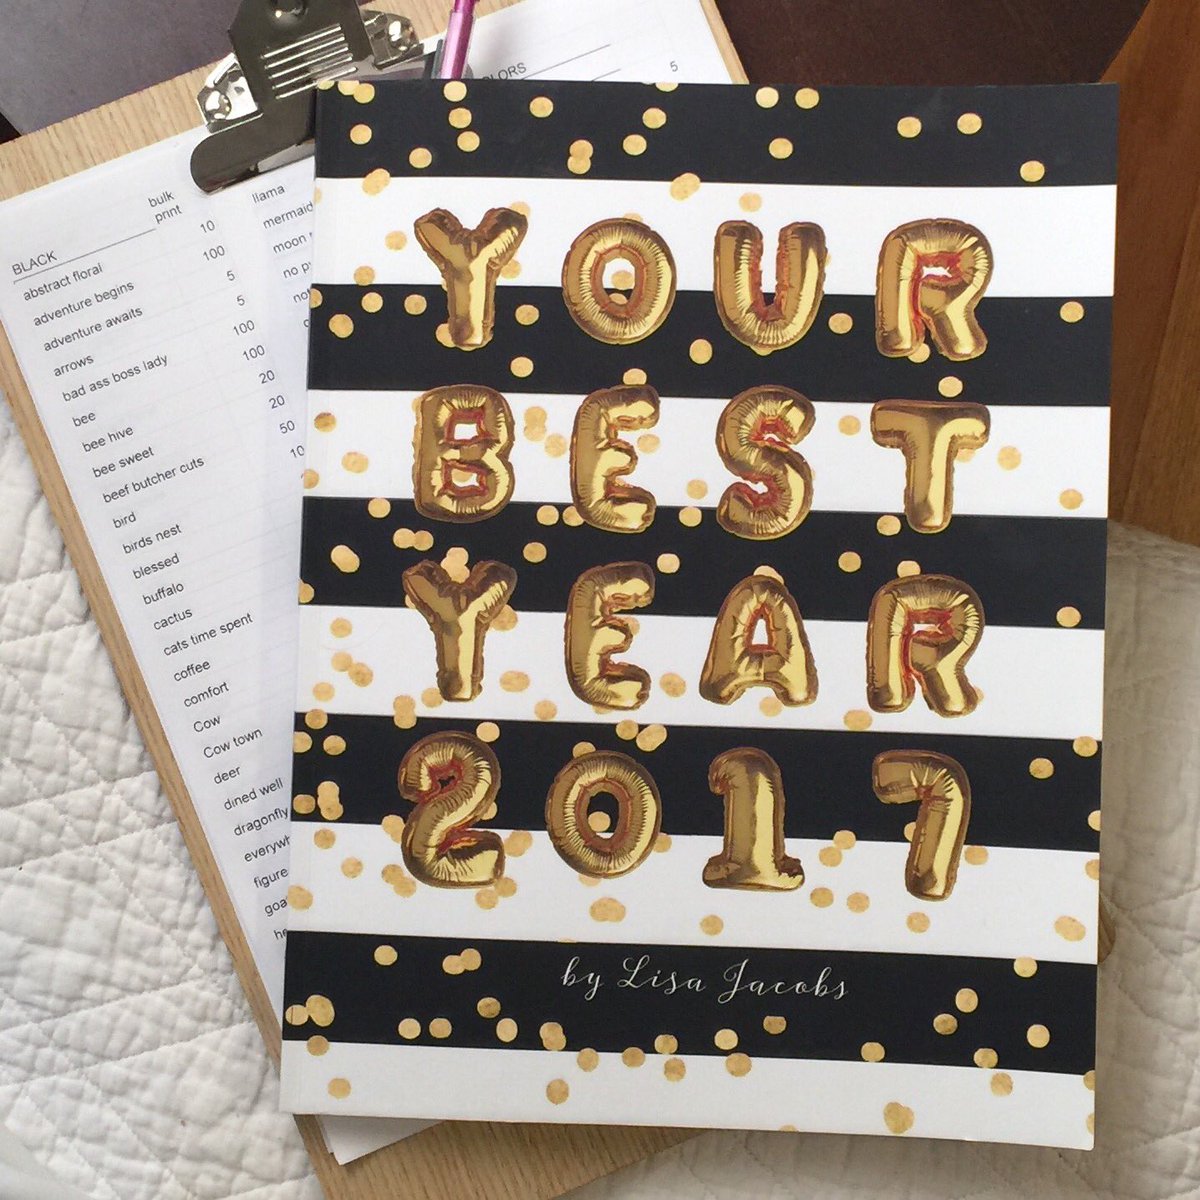 COLORS
5
bulk
print
BLACK
abstract floral 10
adventure begins 100
adventure awaits 5
arrows 5
bad ass boss lady 100
bee 100
bee hive 20
bee sweet 20
beef butcher cuts 50
bird 10
birds nest
blessed
buffalo
cactus
cats time spent
coffee
comfort
Cow
Cow town
deer
dined well
dragonfly
figure
llama
mermaid
moon
no
YOUR
BEST
YEAR
2017
by Lisa Jacobs